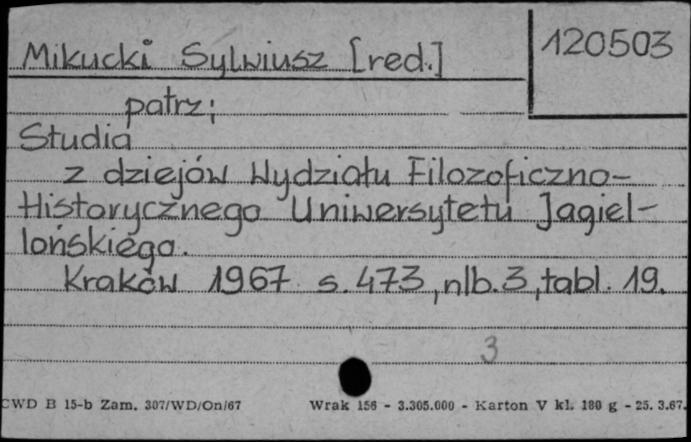 Mikucki Sylwiusz [red.]
120503
patrz;
Studia
z dziejów Wydziału Filozoficzno-
Historycznego Uniwersytetu Jagiel-
lońskiego.
Kraków 1967 s. 473, nlb. 3, tabl. 19.
3
CWD B 15-b Zam. 307/WD/On/67 Wrak 156 - 3.305.000 - Karton V kl. 180 g - 25. 3.67.